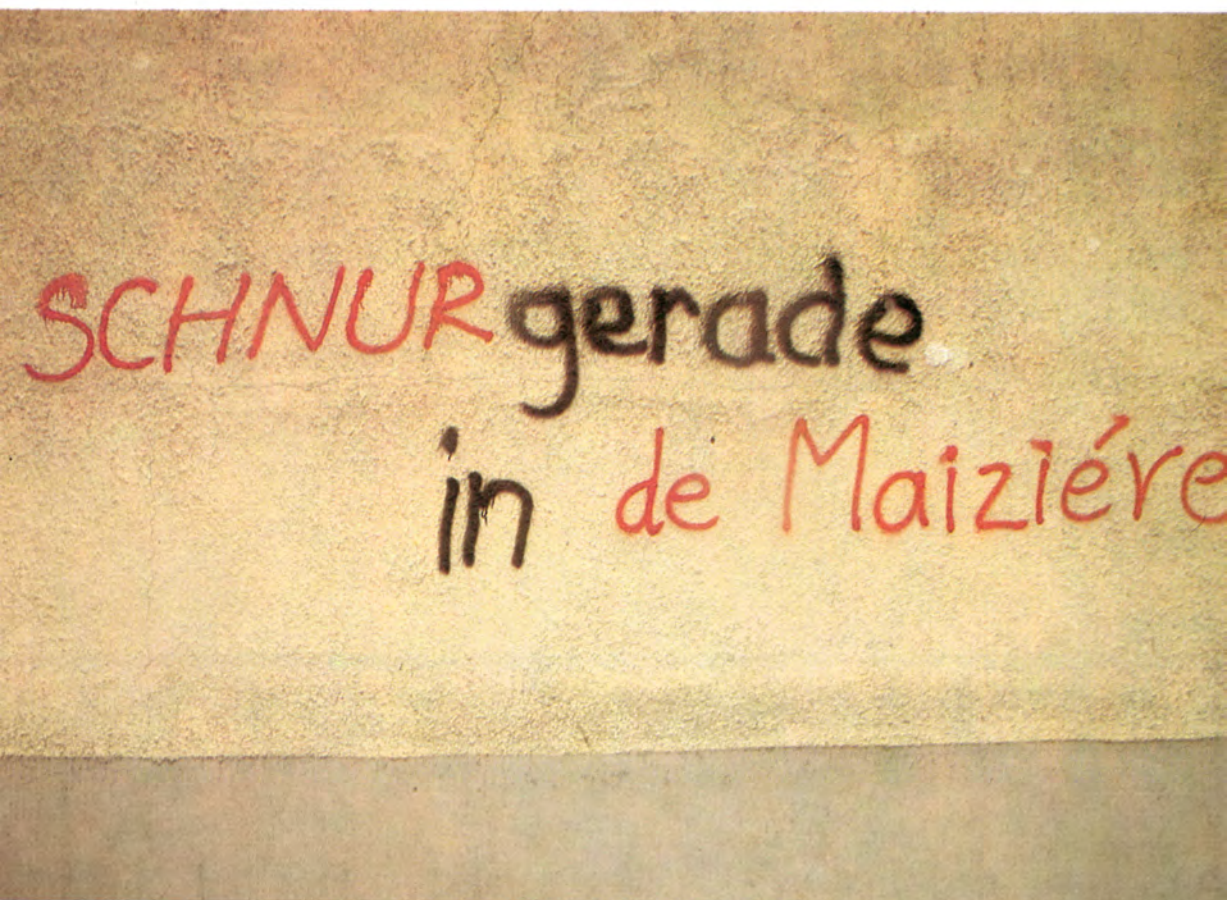 SCHNURgerade
in de Maiziére